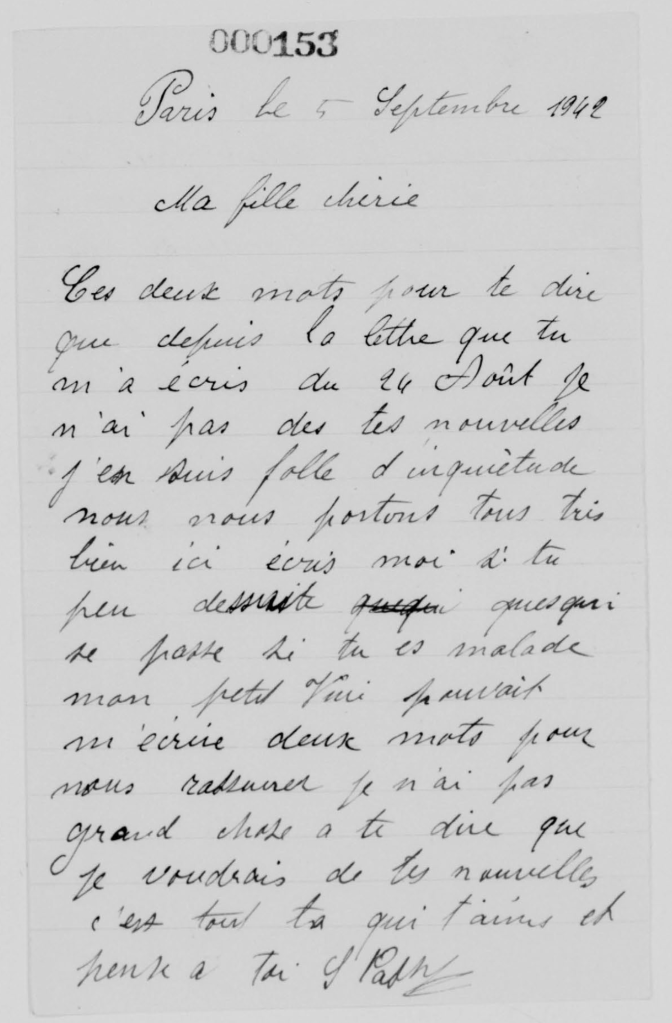 000153
Paris le 5 Septembre 1942
Ma fille chérie
Ces deux mots pour te dire
que depuis la lettre que tu
m'a écris du 24 Août je
n'ai pas des tes nouvelles
j'en suis folle d'inquiètude
nous nous portons tous très
bien ici écris moi si tu
peu dessuite quesqui
se passe si tu es malade
mon petit pouvait
m'écrire deux mots pour
nous rassurer je n'ai pas
grand chose a te dire que
je voudrais de tes nouvelles
c'est tout ta qui t'aime et
pense a toi S